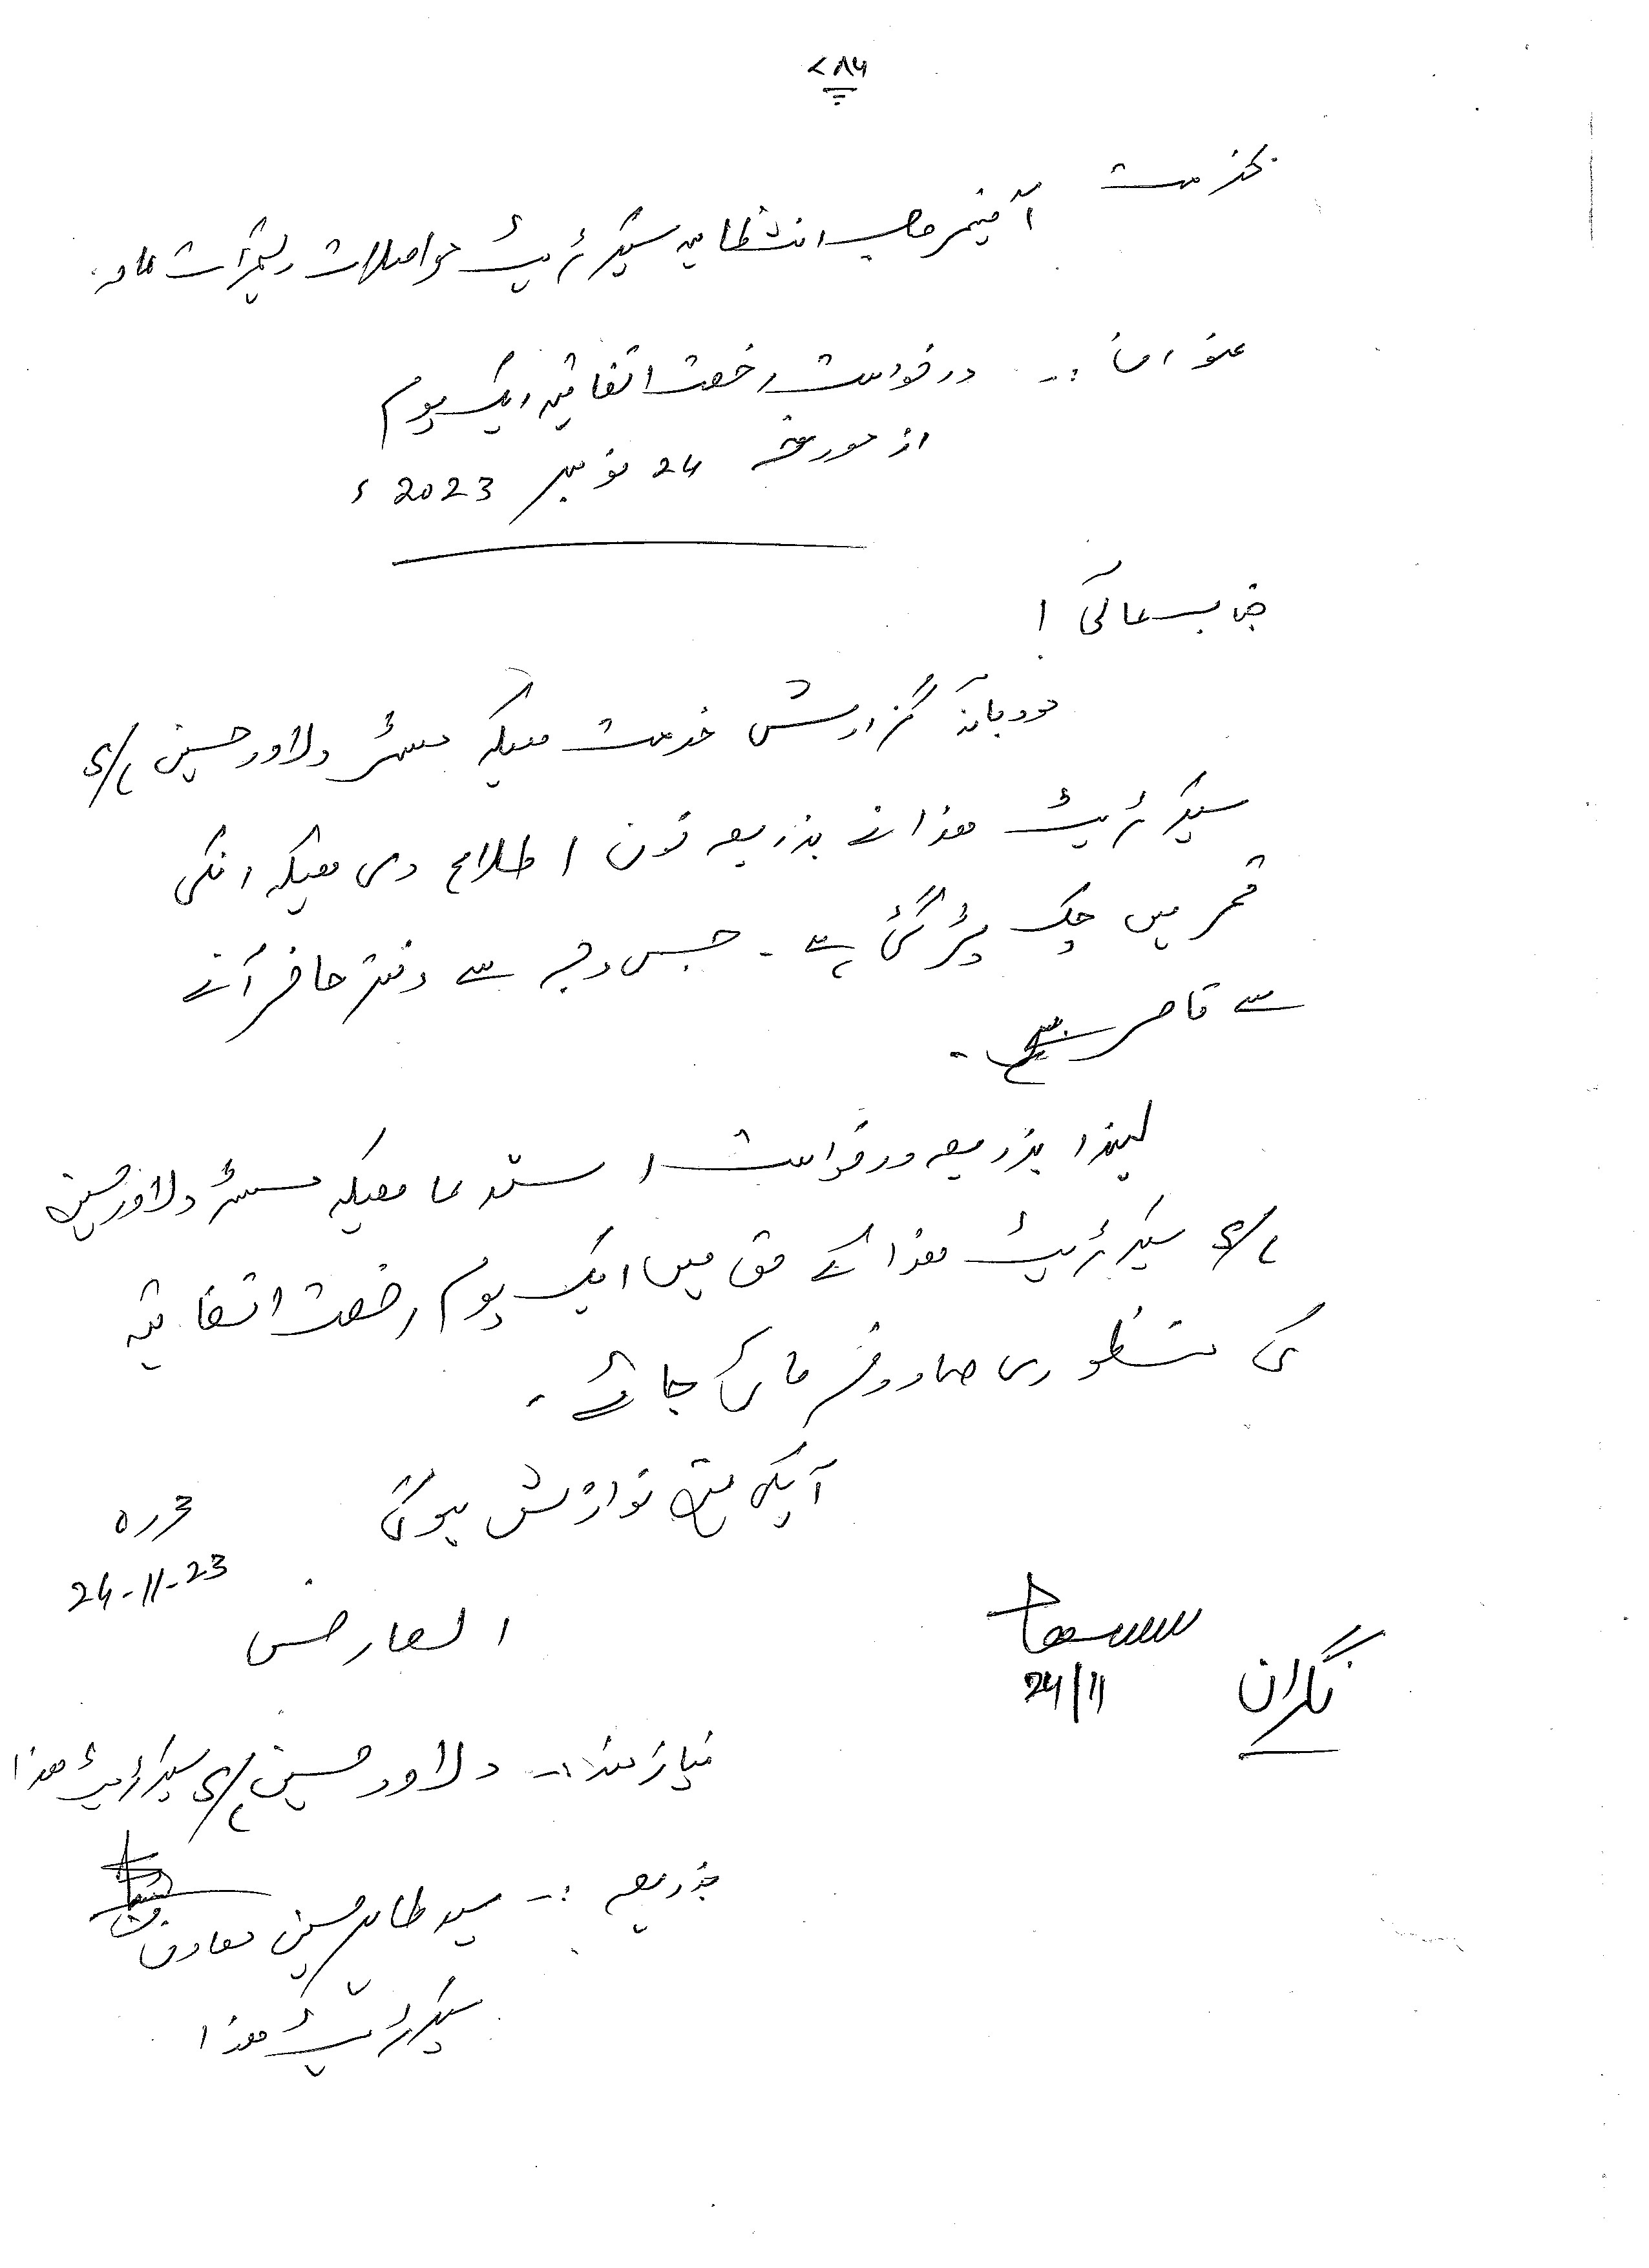 ۷۸۶
بخدمت
آفیسر صاحب انتظامیہ سیکرٹریٹ مواصلات و تعمیرات عامہ
عنوان :۔ درخواست رخصت اتفاقیہ ایک یوم
از مورخہ 24 نومبر 2023ء
جناب عالی !
مودبانہ گزارش خدمت ہیکہ مسٹر دلاور حسین
سیکرٹریٹ ھذا نے بذریعہ فون اطلاع دی ہیکہ انکی
کمر میں چک پڑ گئی ہے ۔ جس وجہ سے دفتر حاضر آنے
سے قاصر ہے ۔
لہذا بذریعہ درخواست استدعا ہیکہ مسٹر دلاور حسین
سیکرٹریٹ ھذا کے حق میں ایک یوم رخصت اتفاقیہ
کی منظوری صادر فرمائی جائے ۔
آپکی عین نوازش ہوگی
محررہ
24-11-23
العارض
24/11
نگران
نیازمند :۔ دلاور حسین سیکرٹریٹ ھذا
بذریعہ :۔ سید طاہر حسین معاون
سیکرٹریٹ ھذا